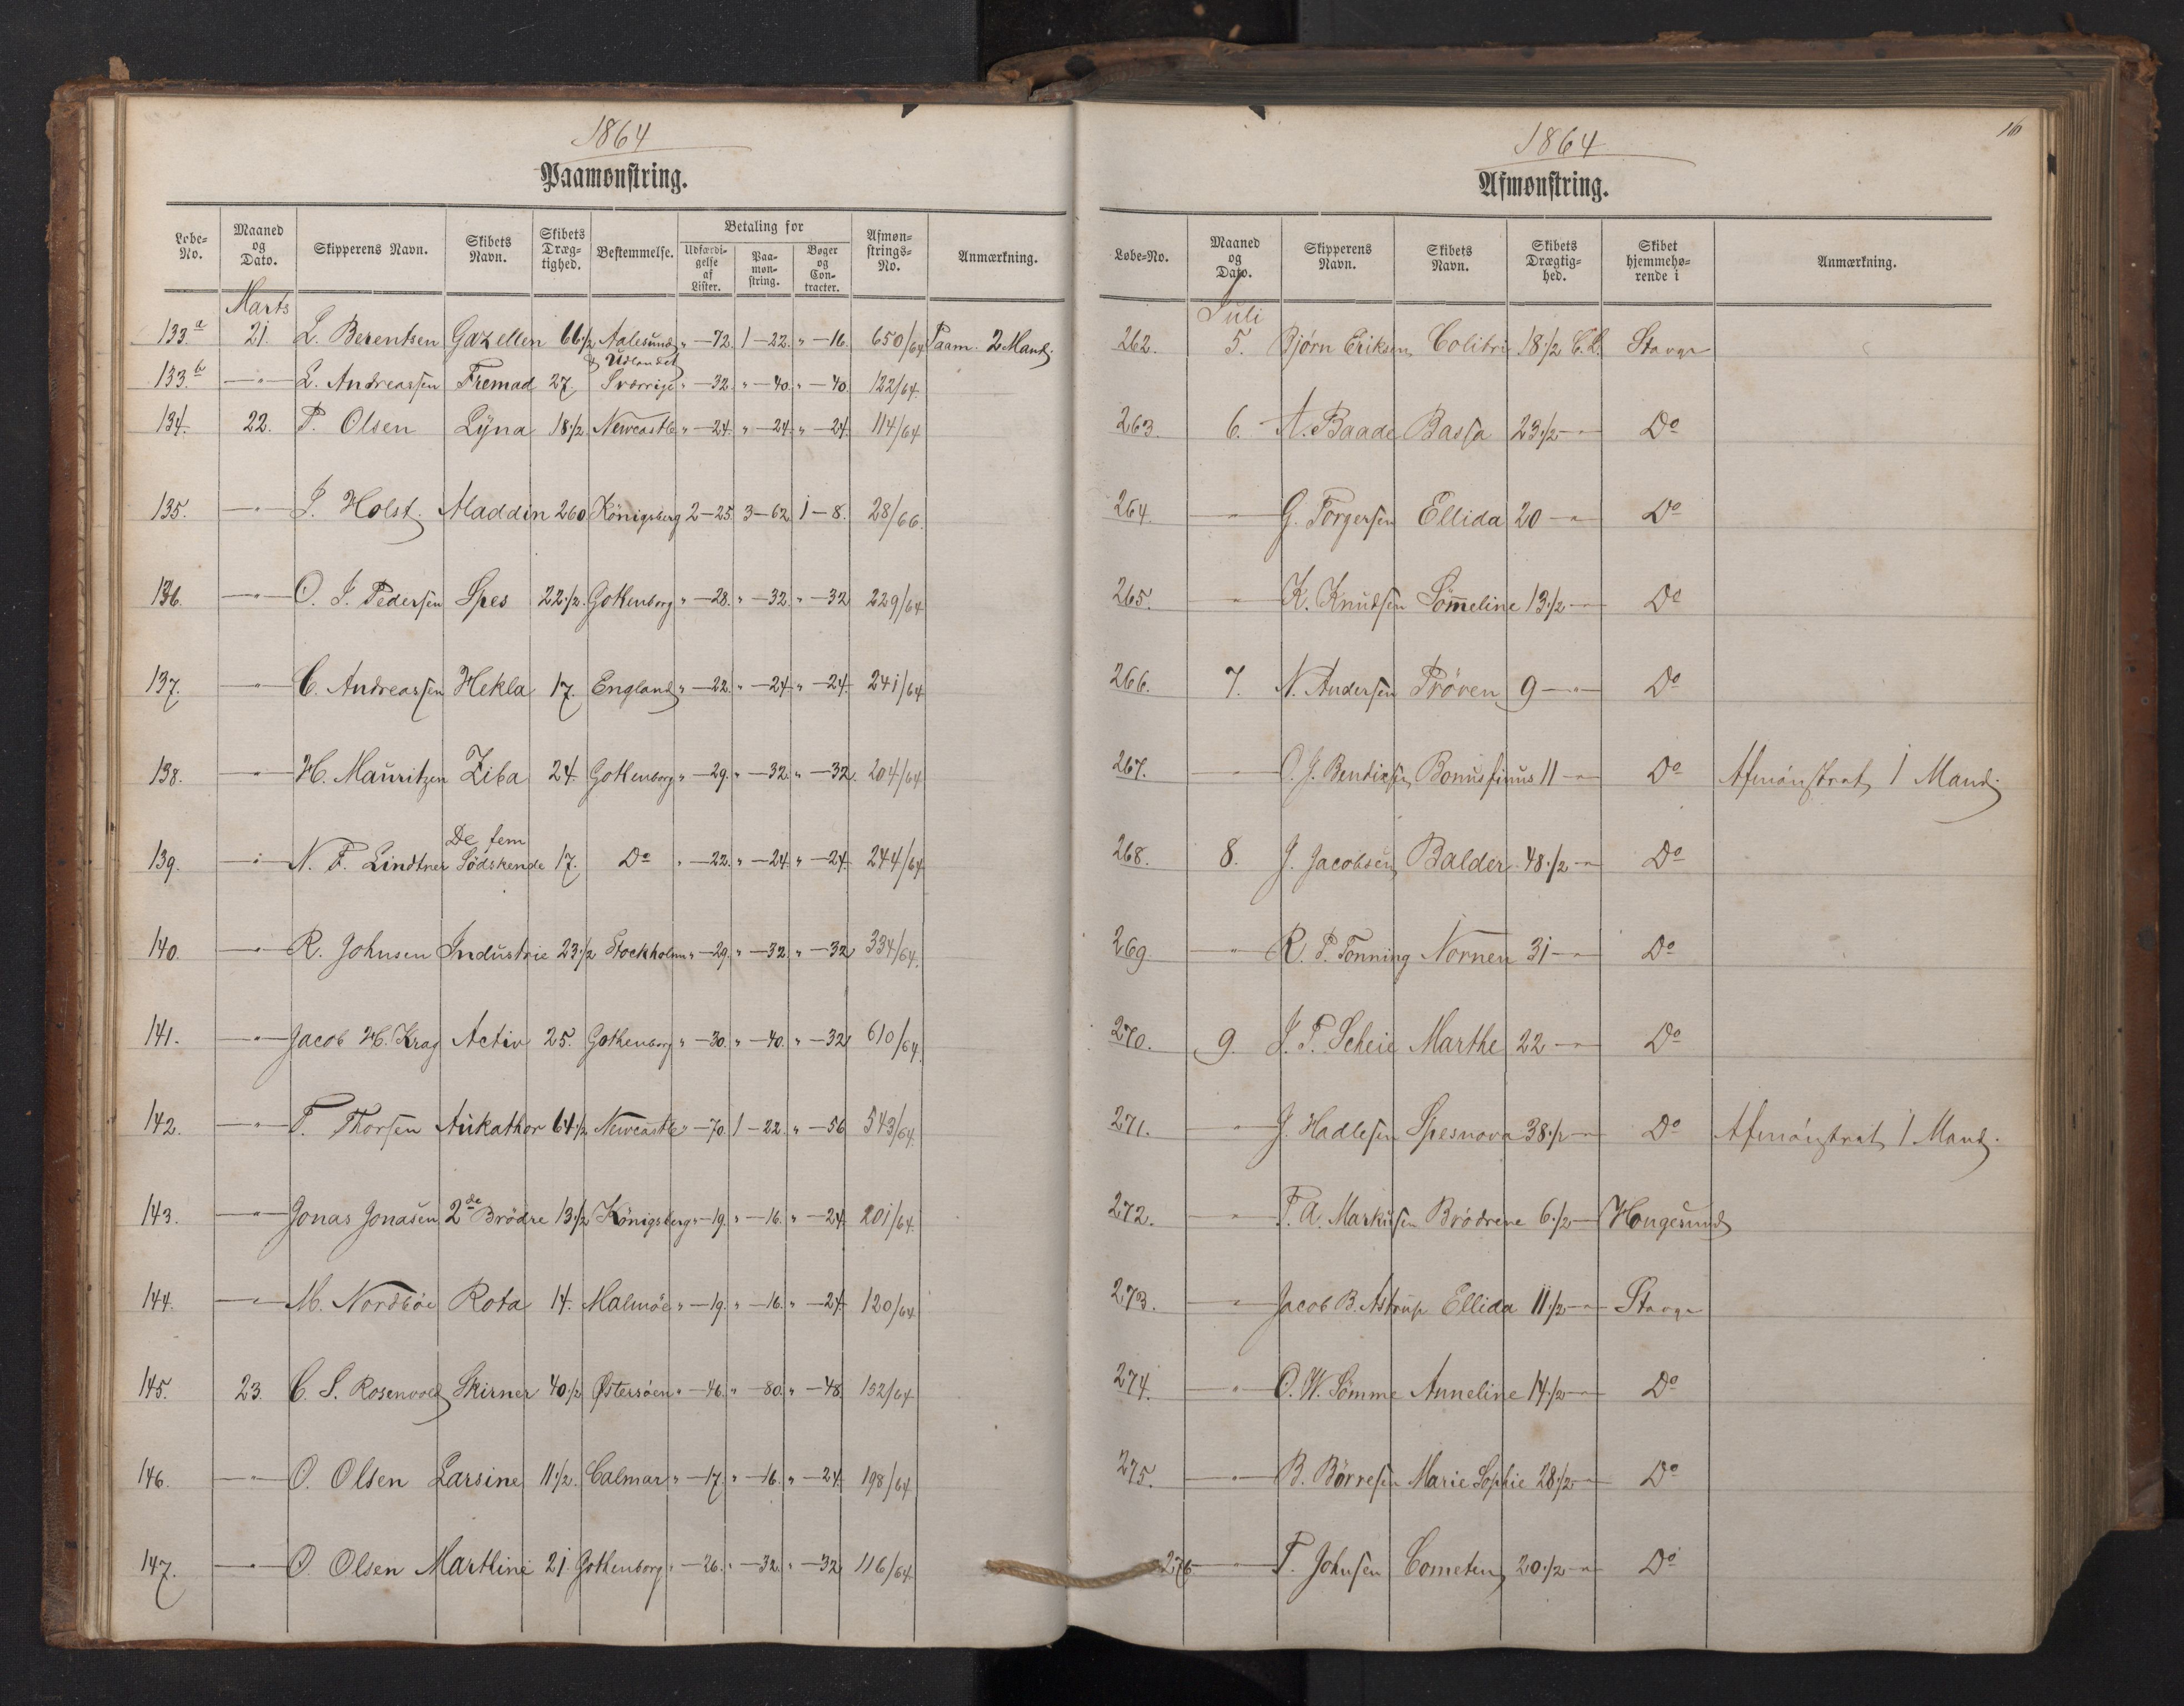 1864
Paamønstring.
Løbe-No. Maaned og Dato. Skipperens Navn. Skibets Navn. Skibets Drægtighed. Bestemmelse. Betaling for Udfærdigelse af Lister. Paamønstring. Bøger og Contracter. Afmønstrings-No. Anmærkning.
Marts
133.a 21. L. Berentsen Gazellen 66 1/2 Aalesund & Udlandet " — 72. 1 — 22. " — 16. 650/64 Paam. 2 Mand.
133.b —"— L. Andreassen Fremad 27 Sverrige " — 32. " — 40. " — 40. 122/64
134. 22. P. Olsen Lyna 18 1/2 Newcastle " — 24. " — 24. " — 24. 114/64
135. —"— J. Holst. Aladdin 260 Königsberg 2 — 25. 3 — 62. 1 — 8. 28/66.
136. —"— O. J. Pedersen Spes 22 1/2. Gothenborg " — 28. " — 32. " — 32 229/64
137. —"— C. Andreassen Hekla 17. England " — 22. " — 24. " — 24. 241/64
138. —"— H. Mauritzen Ziba 24 Gothenborg " — 29. " — 32. " — 32. 204/64
139. —"— N. F. Lindtner De fem Södskende 17. Do " — 22. " — 24. " — 24. 244/64
140. —"— R. Johnsen Industrie 23 1/2 Stockholm " — 29. " — 32. " — 32 334/64.
141. —"— Jacob H. Krag Activ 25. Gothenborg " — 30. " — 40. " — 32 610/64
142. —"— T. Thorsen Aukathor 64 1/2 Newcastle " — 70. 1 — 22. " — 56 543/64
143. —"— Jonas Jonasen 2de Brödre 13 1/2 Königsberg " — 19. " — 16. " — 24 201/64
144. —"— M. Nordböe Rota 14. Malmöe " — 19. " — 16. " — 24 120/64
145. 23. C. S. Rosenvold Skirner 40 1/2 Østersöen " — 46. " — 80. " — 48 152/64
146. —"— O. Olsen Larsine 11 1/2. Calmar " — 17. " — 16. " — 24 198/64
147. —"— O. Olsen Marthine 21. Gothenborg " — 26. " — 32. " — 32 116/64
16
1864
Afmønstring.
Løbe-No. Maaned og Dato. Skipperens Navn. Skibets Navn. Skibets Drægtighed. Skibet hjemmehørende i Anmærkning.
Juli
262. 5. Bjørn Eriksen Colibri 18 1/2 C.L. Stavgr
263. 6. A. Baade Bassa 23 1/2 —"— Do
264. " G. Torgersen Ellida 20 —"— Do
265. " K. Knudsen Sömeline 13 1/2 —"— Do
266. 7. N. Andersen Pröven 9 —"— Do
267. —"— O. J. Bendixsen Bonusfinus 11 —"— Do Afmönstrat 1 Mand.
268. 8. J. Jacobsen Balder 48 1/2 —"— Do
269 —"— R. P. Tonning Nornen 31 —"— Do
270. 9. J. P. Scheie Marthe 22 —"— Do
271. —"— J. Hadlesen Spesnova 38 1/2 —"— Do Afmönstrat 1 Mand.
272. —"— T. A. Markusen Brödrene 6 1/2 — Hougesund
273. —"— Jacob B. Astrup Ellida 11 1/2 —"— Stavgr
274. —"— O. W. Sömme Anneline 14 1/2 —"— Do
275. —"— B. Börresen Marie Sophie 28 1/2 —"— Do
276 —"— T. Johnsen Cometen 20 1/2 —"— Do